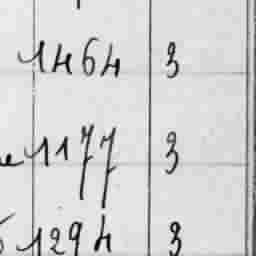 1464 3
1177 3
1294 3